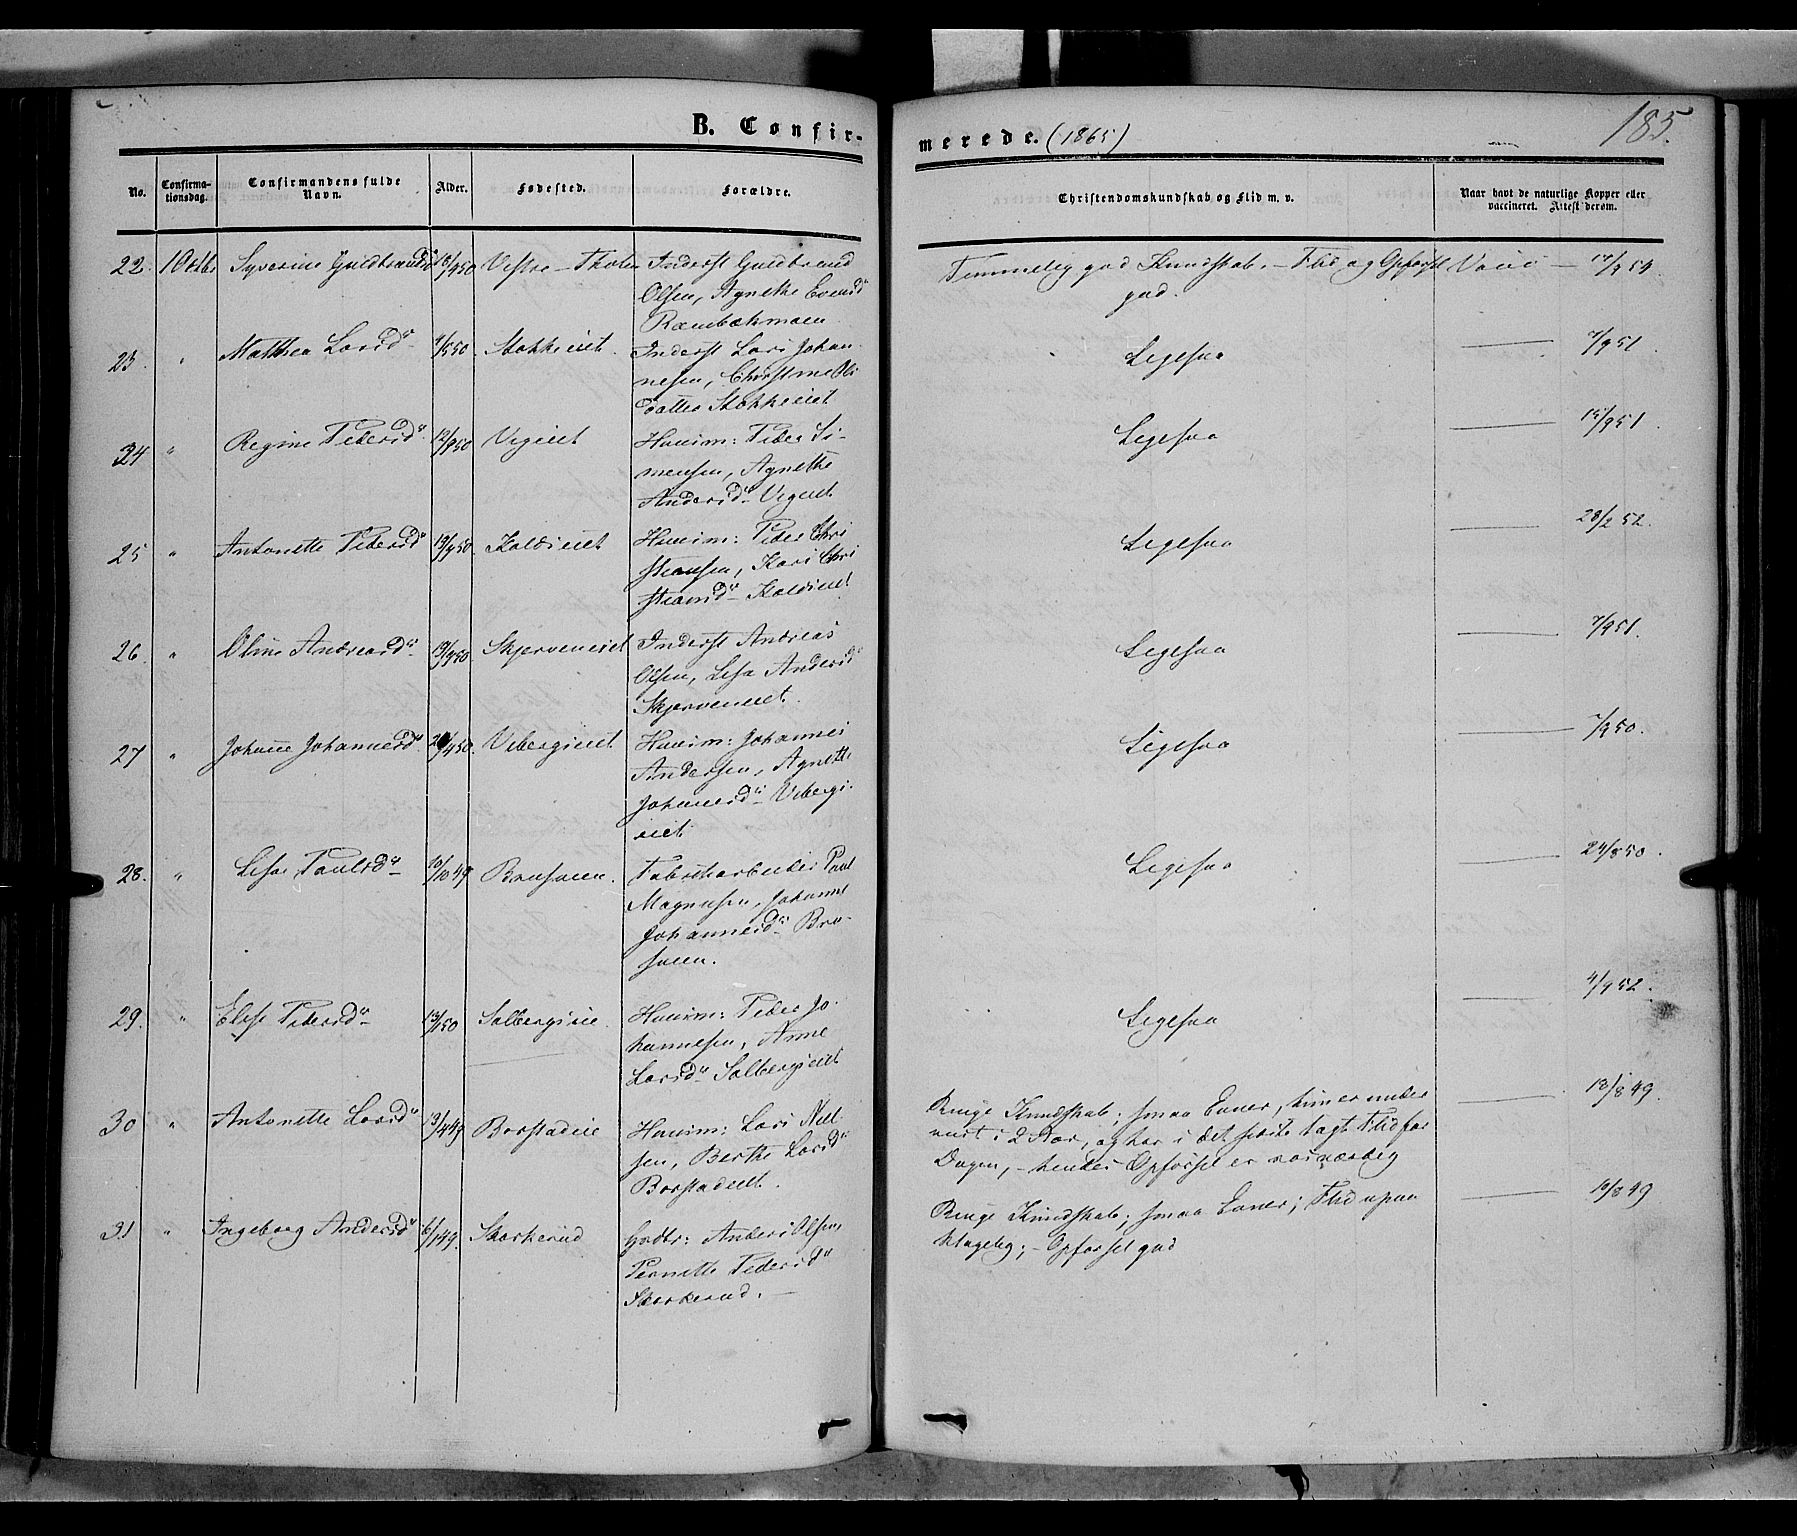 B. Confir-
merede. (1865)
185.
No.
Confirma-
tionsdag.
Confirmandens fulde
Navn.
Alder.
Fødested.
Forældre.
Christendomskundskab og Flid m. v.
Naar havt de naturlige Kopper eller
vaccineret. Attest derom.
22. 1 Octbr Syverine Guldbrandsd Vestre-Thoten Inderst Guldbrand
Olsen, Agnethe Evensdr
Rambækmoen
Temmelig god Kundskab. - Flid og Opførsel
god.
Vacc —
23. " Mathea Larsdr Stokkeeiet. Inderst Lars Johan-
nesen, Christine Ols
datter Stokkeeiet
Ligesaa — 7/9 51.
24 " Regine Pedersdr 12/8 50 Vegeiet Huusm: Peder Si-
mensen, Agnethe
Andersdr Vegeiet
Ligesaa — 15/9 51.
25 " Antonette Pedersdr 19/9 50 Koldeiet Huusm: Peder Chri
stiansen, Kari Chri
stiansdr Koldeiet
Ligesaa — 28/2 52.
26 " Oline Andreasdr 19/9 50 Skjerveneiet Inderst Andreas
Olsen, Lisa Andersdr
Skjerveneiet.
Ligesaa — 7/9 51.
27 " Johanne Johannesdr Vibergeiet Huusm: Johannes
Andersen, Agnethe
Johannesdr Vibergs-
eiet
Ligesaa — 7/9 50.
28. " Lisa Paulsdr 10/10 49 Brusveen. Fabrikarbeider Paul
Magnusen, Johanne
Johannesdr Bru-
sveen.
Ligesaa — 24/8 50.
29. " Else Pedersdr 13/1 50 Solbergeie. Huusm: Peder Jo-
hannesen, Anne
Larsdr Solbergeiet
Ligesaa — 4/9 52.
30 " Antonette Larsdr 13/4 49 Borstadeie Huusm: Lars Niel-
sen, Berthe Larsdr
Borstadeiet.
Ringe Kundskab; smaa Evner, hun er under
viist i 2 Aar, og har i det sidste lagt Flid for
Dagen, - hendes Opførsel er rosværdig
— 13/8 49.
31 " Ingeborg Andersdr 6/1 49. Skorkerud Gaardbr: Anders Olsen
Pernette Pedersdr
Skorkerud. —
Ringe Kundskab; smaa Evner; Flid upaa
klagelig; - Opførsel god
— 10/8 49